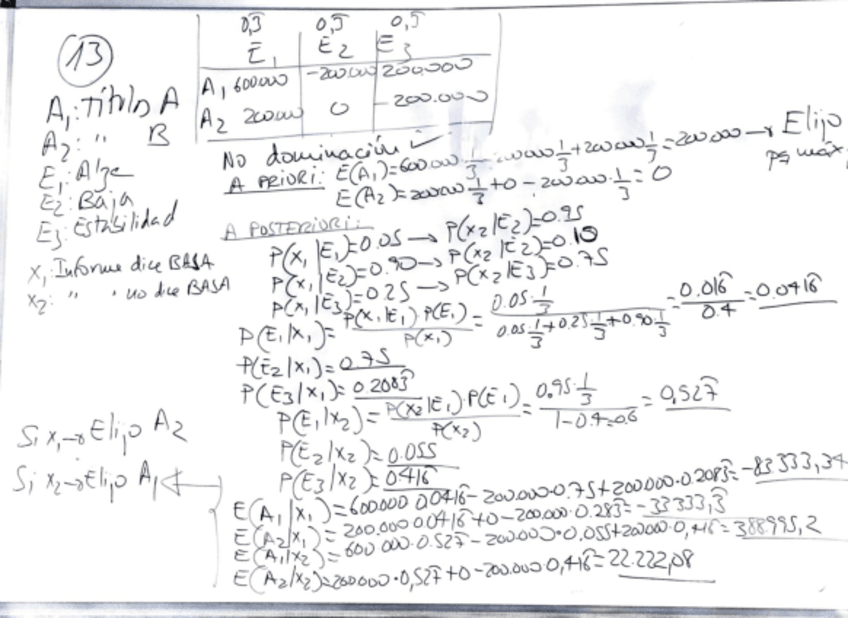 13
0,3̂ 0,3̂ 0,3̂
E₁ E₂ E₃
A₁ 600000 -200000 200.000
A₂ 200000 0 -200.000
A₁: Título A
A₂: " B
E₁: Alza
E₂: Baja
E₃: Estabilidad
X₁: Informe dice BAJA
X₂: " " no dice BAJA
No dominación ✓
A PRIORI: E(A₁)=600.000·1/3-200000·1/3+200000·1/3=200.000 → Elijo
pq máx.
E(A₂)=200000·1/3+0-200000·1/3=0
A POSTERIORI:
P(X₁|E₁)=0.05 → P(X₂|E₂)=0.95
P(X₁|E₂)=0.90 → P(X₂|E₂)=0.10
P(X₁|E₃)=0.25 → P(X₂|E₃)=0.75
P(E₁|X₁)=P(X₁|E₁)·P(E₁)/P(X₁)=0.05·1/3/0.05·1/3+0.25·1/3+0.90·1/3=0.016̂/0.4=0.0416̂
P(E₂|X₁)=0.75
P(E₃|X₁)=0.2083̂
P(E₁|X₂)=P(X₂|E₁)·P(E₁)/P(X₂)=0.95·1/3/1-0.4=0.6=0,527̂
P(E₂|X₂)=0.055
P(E₃|X₂)=0.416̂
Si X₁→Elijo A₂
Si X₂→Elijo A₁ ←
E(A₁|X₁)=600000·0.0416̂-200.000·0.75+200.000·0.2083̂=-83333,34
E(A₂|X₁)=200.000·0.0416̂+0-200.000·0.283̂=-33333,3̂
E(A₁|X₂)=600 000·0.527̂-200.000·0.055+200000·0,416̂=388.995,2
E(A₂|X₂)=200000·0,527̂+0-200.000·0,416̂=22.222,08